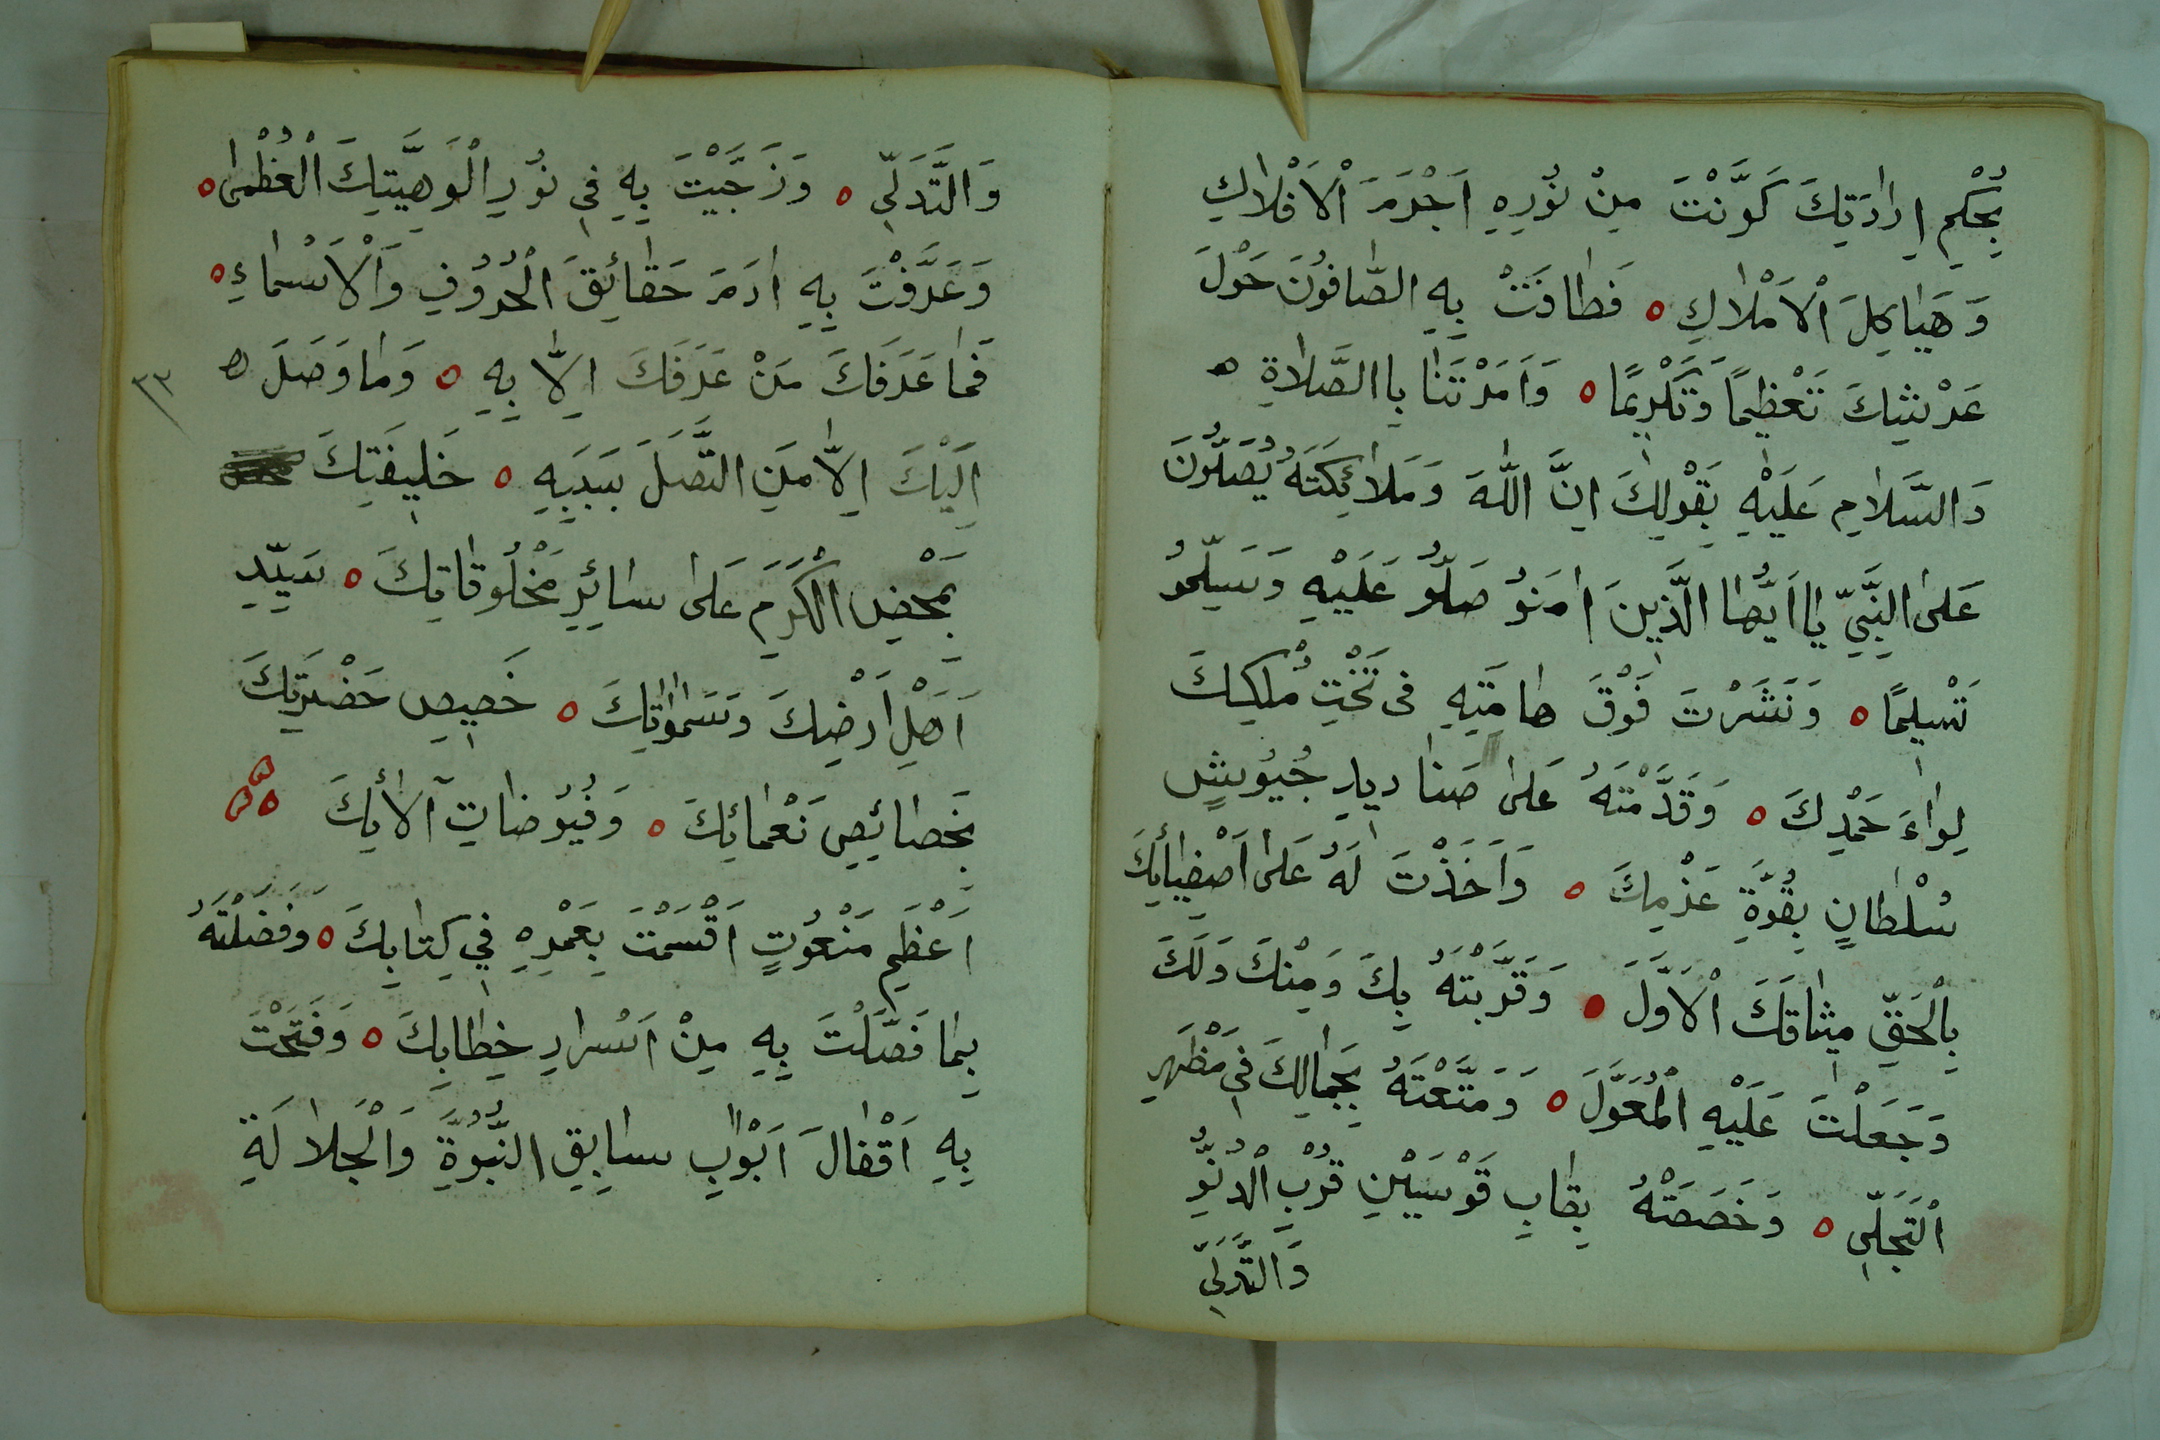 بِحُكْمِ اِرَادَتِكَ كَوَّنْتَ مِنْ نُوُرِهِ اَجْرَمَ الْاَفْلَاكِ
وَهَيَاكِلَ الْاَمْلَاكِ ه فَطَافَتْ بِهِ الصَّافُونَ حَوْلَ
عَرْشِكَ تَعْظِيماً وَتَكْرِيمًا ه وَاَمَرْتَنَا بِاالصَّلَاةِ ه
وَالسَّلَامِ عَلَيْهِ بِقَوْلِكَ اِنَّ اللّٰهَ وَمَلَائِكَتَهُ يُصَلُّونَ
عَلَى النَّبِيِّ يَااَيُّهَا الَّذِينَ اٰمَنوُ صَلُّوُ عَلَيْهِ وَسَلِّموُ
تَسْلِيمًا ه وَنَشَرْتَ فَوْقَ هَامَتِهِ فى تَخْتِ مُلْكِكَ
لِوَاءَ حَمْدِكَ ه وَقَدَّمْتَهُ عَلَى صَنَادِيدِ جُيوُشِ
سُلْطَانٍ بِقُوَّةِ عَزْمِكَ ه وَاَخَذْتَ لَهُ عَلَى اَصْفِيَائِكَ
بِالْحَقِّ مِيثَاقَكَ الْاَوَّلَ ه وَقَرَّبْتَهُ بِكَ وَمِنْكَ وَلَكَ
وَجَعَلْتَ عَلَيْهِ الْمُعَوَّلَ ه وَمَتَّعْتَهُ بِجَمَالِكَ فِي مَظْهَرِ
الْتَجَلِّي ه وَخَصَصَتْهُ بِقَابِ قَوْسَيْنِ قُرْبِ الْدُنُوِّ
وَالتَّدَلِّي
وَالتَّدَلِّي ه وَزَجَّيْتَ بِهِ فِي نُورِ الْوَهِيَّتِكَ الْعُظْمٰى ه
وَعَرَّفْتَ بِهِ اٰدَمَ حَقَائِقَ الْحُرُوُفِ وَالْاَسْمَاءِ ه
فَمَا عَرَفَكَ مَنْ عَرَفَكَ اِلَّا بِهِ ه وَمَا وَصَلَ ه
٣٣
اِلَيْكَ اِلَّا مَنِ التَّصَلَ بِسَبَبِهِ ه خَلِيفَتِكَ
بِمَحْضِ الْكَرَمِ عَلَى سَائِرِ مَخْلُوقَاتِكَ ه سَيِّدِ
اَهْلِ اَرْضِكَ وَسَمَوَاتِكَ ه خَصِيصِ حَضْرَتِكَ
بِخَصَائِصِ نَعْمَائِكَ ه وَفُيُوضَاتِ آلَائِكَ
اَعْظَمِ مَنْعُوتٍ اَقْسَمْتَ بِعَمْرِهِ فِي كِتَابِكَ ه وَفَضَلْتَهُ
بِمَا فَصَّلْتَ بِهِ مِنْ اَسْرَارِ خِطَابِكَ ه وَفَتَحْتَ
بِهِ اَقْفَالَ اَبْوَابِ سَابِقِ النُّبُوَّةِ وَالْجَلَالَةِ